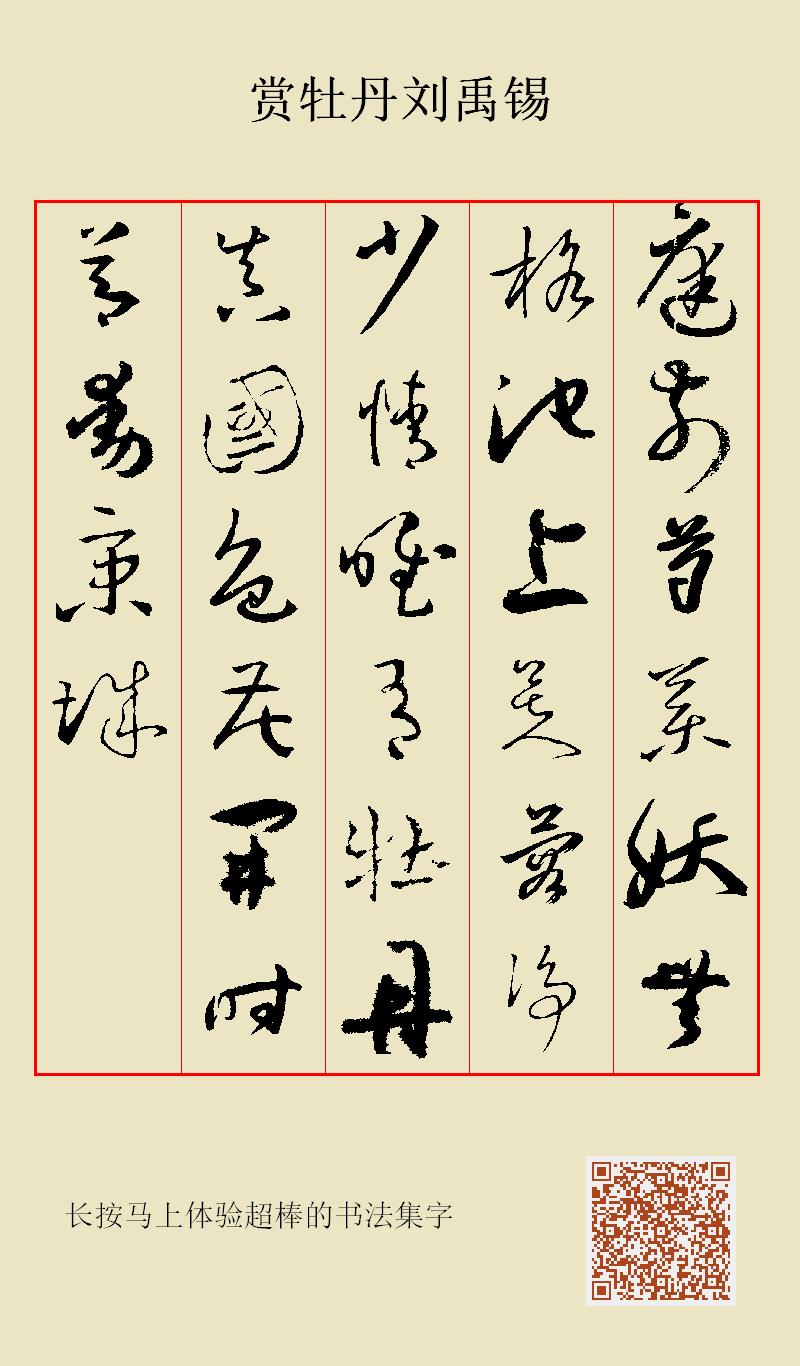 赏牡丹刘禹锡
庭前芍藥妖無
格池上芙蕖净
少情唯有牡丹
真國色花開时
節動京城
长按马上体验超棒的书法集字